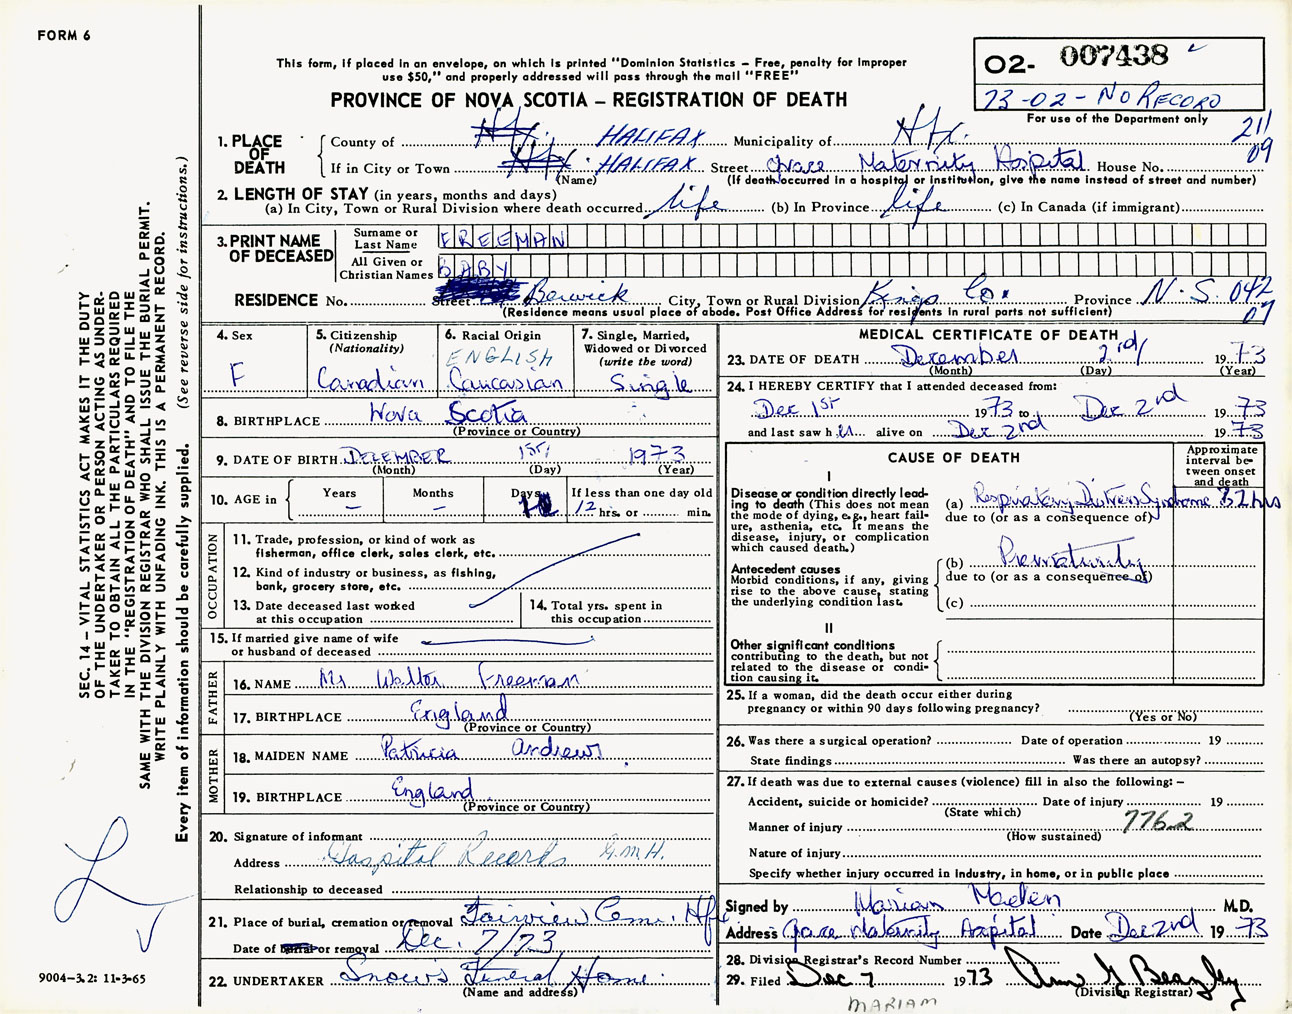 FORM 6
This form, if placed in an envelope, on which is printed "Dominion Statistics – Free, penalty for improper
use $50," and properly addressed will pass through the mail "FREE"
PROVINCE OF NOVA SCOTIA – REGISTRATION OF DEATH
02- 007438
73-02-NO RECORD
For use of the Department only
211
09
1. PLACE OF DEATH
County of Hfx. HALIFAX Municipality of Hfx.
If in City or Town Hfx. HALIFAX Street Grace Maternity Hospital House No.
(Name) (If death occurred in a hospital or institution, give the name instead of street and number)
2. LENGTH OF STAY (in years, months and days)
(a) In City, Town or Rural Division where death occurred life (b) In Province life (c) In Canada (if immigrant)
3. PRINT NAME OF DECEASED
Surname or Last Name FREEMAN
All Given or Christian Names BABY
RESIDENCE No. Street Berwick City, Town or Rural Division Kings Co. Province N.S. 042
07
(Residence means usual place of abode. Post Office Address for residents in rural parts not sufficient)
4. Sex
F
5. Citizenship
(Nationality)
Canadian
6. Racial Origin
ENGLISH
Caucasian
7. Single, Married,
Widowed or Divorced
(write the word)
Single
8. BIRTHPLACE Nova Scotia
(Province or Country)
9. DATE OF BIRTH DECEMBER 1st 1973
(Month) (Day) (Year)
10. AGE in Years – Months – Days If less than one day old
12 hrs. or min.
OCCUPATION
11. Trade, profession, or kind of work as
fisherman, office clerk, sales clerk, etc.
12. Kind of industry or business, as fishing,
bank, grocery store, etc.
13. Date deceased last worked
at this occupation
14. Total yrs. spent in
this occupation
15. If married give name of wife
or husband of deceased
FATHER
16. NAME Mr Walter Freeman
17. BIRTHPLACE England
(Province or Country)
MOTHER
18. MAIDEN NAME Patricia Andrews
19. BIRTHPLACE England
(Province or Country)
20. Signature of informant
Address Hospital Records G.M.H.
Relationship to deceased
21. Place of burial, cremation or removal Fairview Cem. Hfx
Date of burial or removal Dec. 7/73
22. UNDERTAKER Snow's Funeral Home
(Name and address)
MEDICAL CERTIFICATE OF DEATH
23. DATE OF DEATH December 2nd 1973
(Month) (Day) (Year)
24. I HEREBY CERTIFY that I attended deceased from:
Dec 1st 1973 to Dec 2nd 1973
and last saw her alive on Dec 2nd 1973
CAUSE OF DEATH
Approximate
interval be-
tween onset
and death
I
Disease or condition directly lead-
ing to death (This does not mean
the mode of dying, e.g., heart fail-
ure, asthenia, etc. It means the
disease, injury, or complication
which caused death.)
(a) Respiratory Distress Syndrome 32 hrs
due to (or as a consequence of)
Antecedent causes
Morbid conditions, if any, giving
rise to the above cause, stating
the underlying condition last.
(b) Prematurity
due to (or as a consequence of)
(c)
II
Other significant conditions
contributing to the death, but not
related to the disease or condi-
tion causing it.
25. If a woman, did the death occur either during
pregnancy or within 90 days following pregnancy?
(Yes or No)
26. Was there a surgical operation? Date of operation 19
State findings Was there an autopsy?
27. If death was due to external causes (violence) fill in also the following: –
Accident, suicide or homicide? Date of injury 19
(State which)
Manner of injury 776.2
(How sustained)
Nature of injury
Specify whether injury occurred in industry, in home, or in public place
Signed by Mariam M.D.
Address Grace Maternity Hospital Date Dec 2nd 1973
28. Division Registrar's Record Number
29. Filed Dec 7 1973
(Division Registrar)
MARIAM
SEC. 14 – VITAL STATISTICS ACT MAKES IT THE DUTY
OF THE UNDERTAKER OR PERSON ACTING AS UNDER-
TAKER TO OBTAIN ALL THE PARTICULARS REQUIRED
IN THE "REGISTRATION OF DEATH" AND TO FILE THE
SAME WITH THE DIVISION REGISTRAR WHO SHALL ISSUE THE BURIAL PERMIT.
WRITE PLAINLY WITH UNFADING INK. THIS IS A PERMANENT RECORD.
Every item of information should be carefully supplied. (See reverse side for instructions.)
9004-3.2: 11-3-65